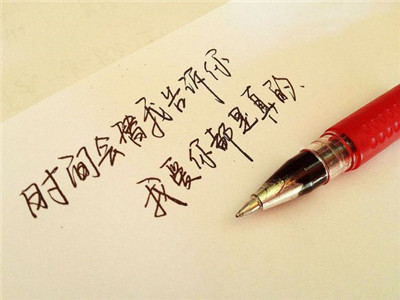 时间会替我告诉你
我爱你都是真的.